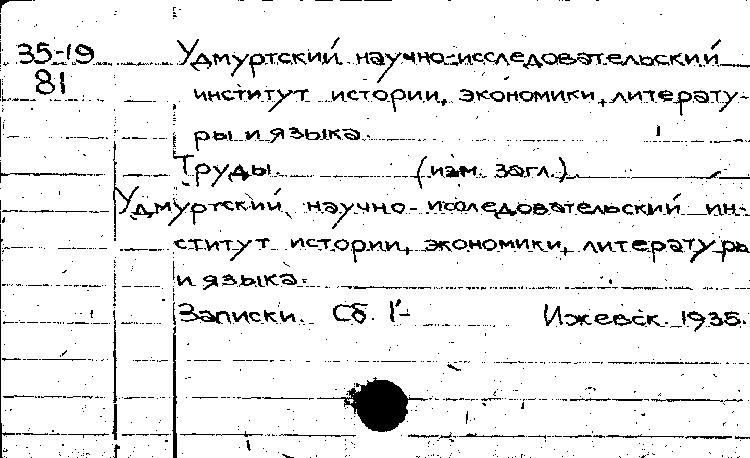 35-19 Удмуртский научно-исследовательский
81 институт истории, экономики, литерату-
ры и языка.
Труды. (изм. загл.)
Удмуртский научно-исследовательский ин-
ститут истории, экономики, литературы
и языка.
Записки. Сб. 1- Ижевск. 1935.